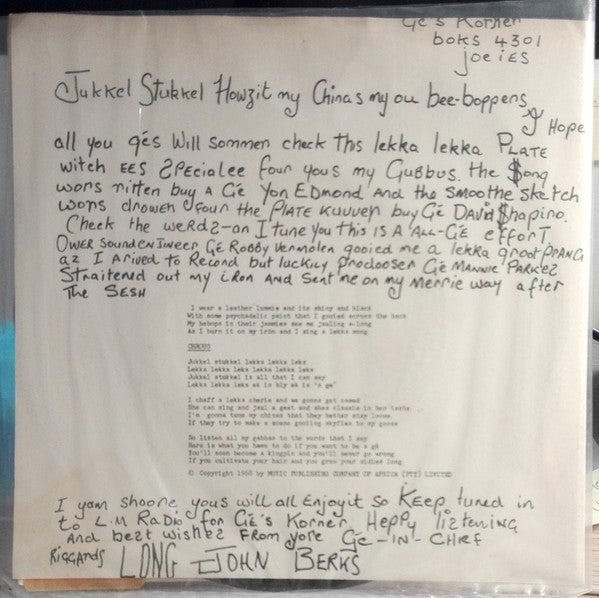 Gé's Korner
boks 4301
joeies
Jukkel Stukkel Howzit my Chinas my ou bee-boppens
I Hope
all you gés Will sommen check this lekka lekka PLATE
witch EES SPECialee four yous my Gubbus. the $ong
wors ritten buy A Gé Yon EDmond And the Smoothe sketch
wors drowen four the PLATE kuuver buy Gé DAVID $hapiro.
Check the weRdz-on I tune you this IS A 'ALL-Gé effort
OWER SOUNDENJINEER Gé RObby VERMOlen gooied me a lekka groot PRANG
az I ARIVED to Record but luckily prodooser Gé MANNIE PARKEZ
Straitened out my IRON And Sent me on my Merrie way after
The SESH
I wear a leather lummie and its shiny and black
With some psychadelic paint that I gooied across the back
My bebops in their jammies see me jauling a-long
As I burn it on my iron and I sing a lekka song
CHORUS
Jukkel stukkel lekka lekka leks
Lekka lekka leks lekka lekka leks
Jukkel stukkel is all that I can say
Lekka lekka leks ek is bly ek is 'n ge"
I chaff a lekka cherie and we gonna get
She can sing and jaul a geet and she
I'm gonna tune my chinas that they better stay loose
If they try to make a scene gooiing skyfies to my goose
So listen all my gabbas to the words that I say
Here is what you have to do if you want to be a gé
You'll soon become a kingpin and you'll never go wrong
If you cultivate your hair and you grow your sidies long
© Copyright 1968 by MUSIC PUBLISHING COMPANY OF AFRICA (PTY) LIMITED
I yam shoore yous will all Enjoyit so KEEP tuned in
to L.M RADio for Gé's Korner. Heppy liztening
And bezt wishez FROM yore Gé-IN-CHEF
RIGGARDS LONG JOHN BERKS